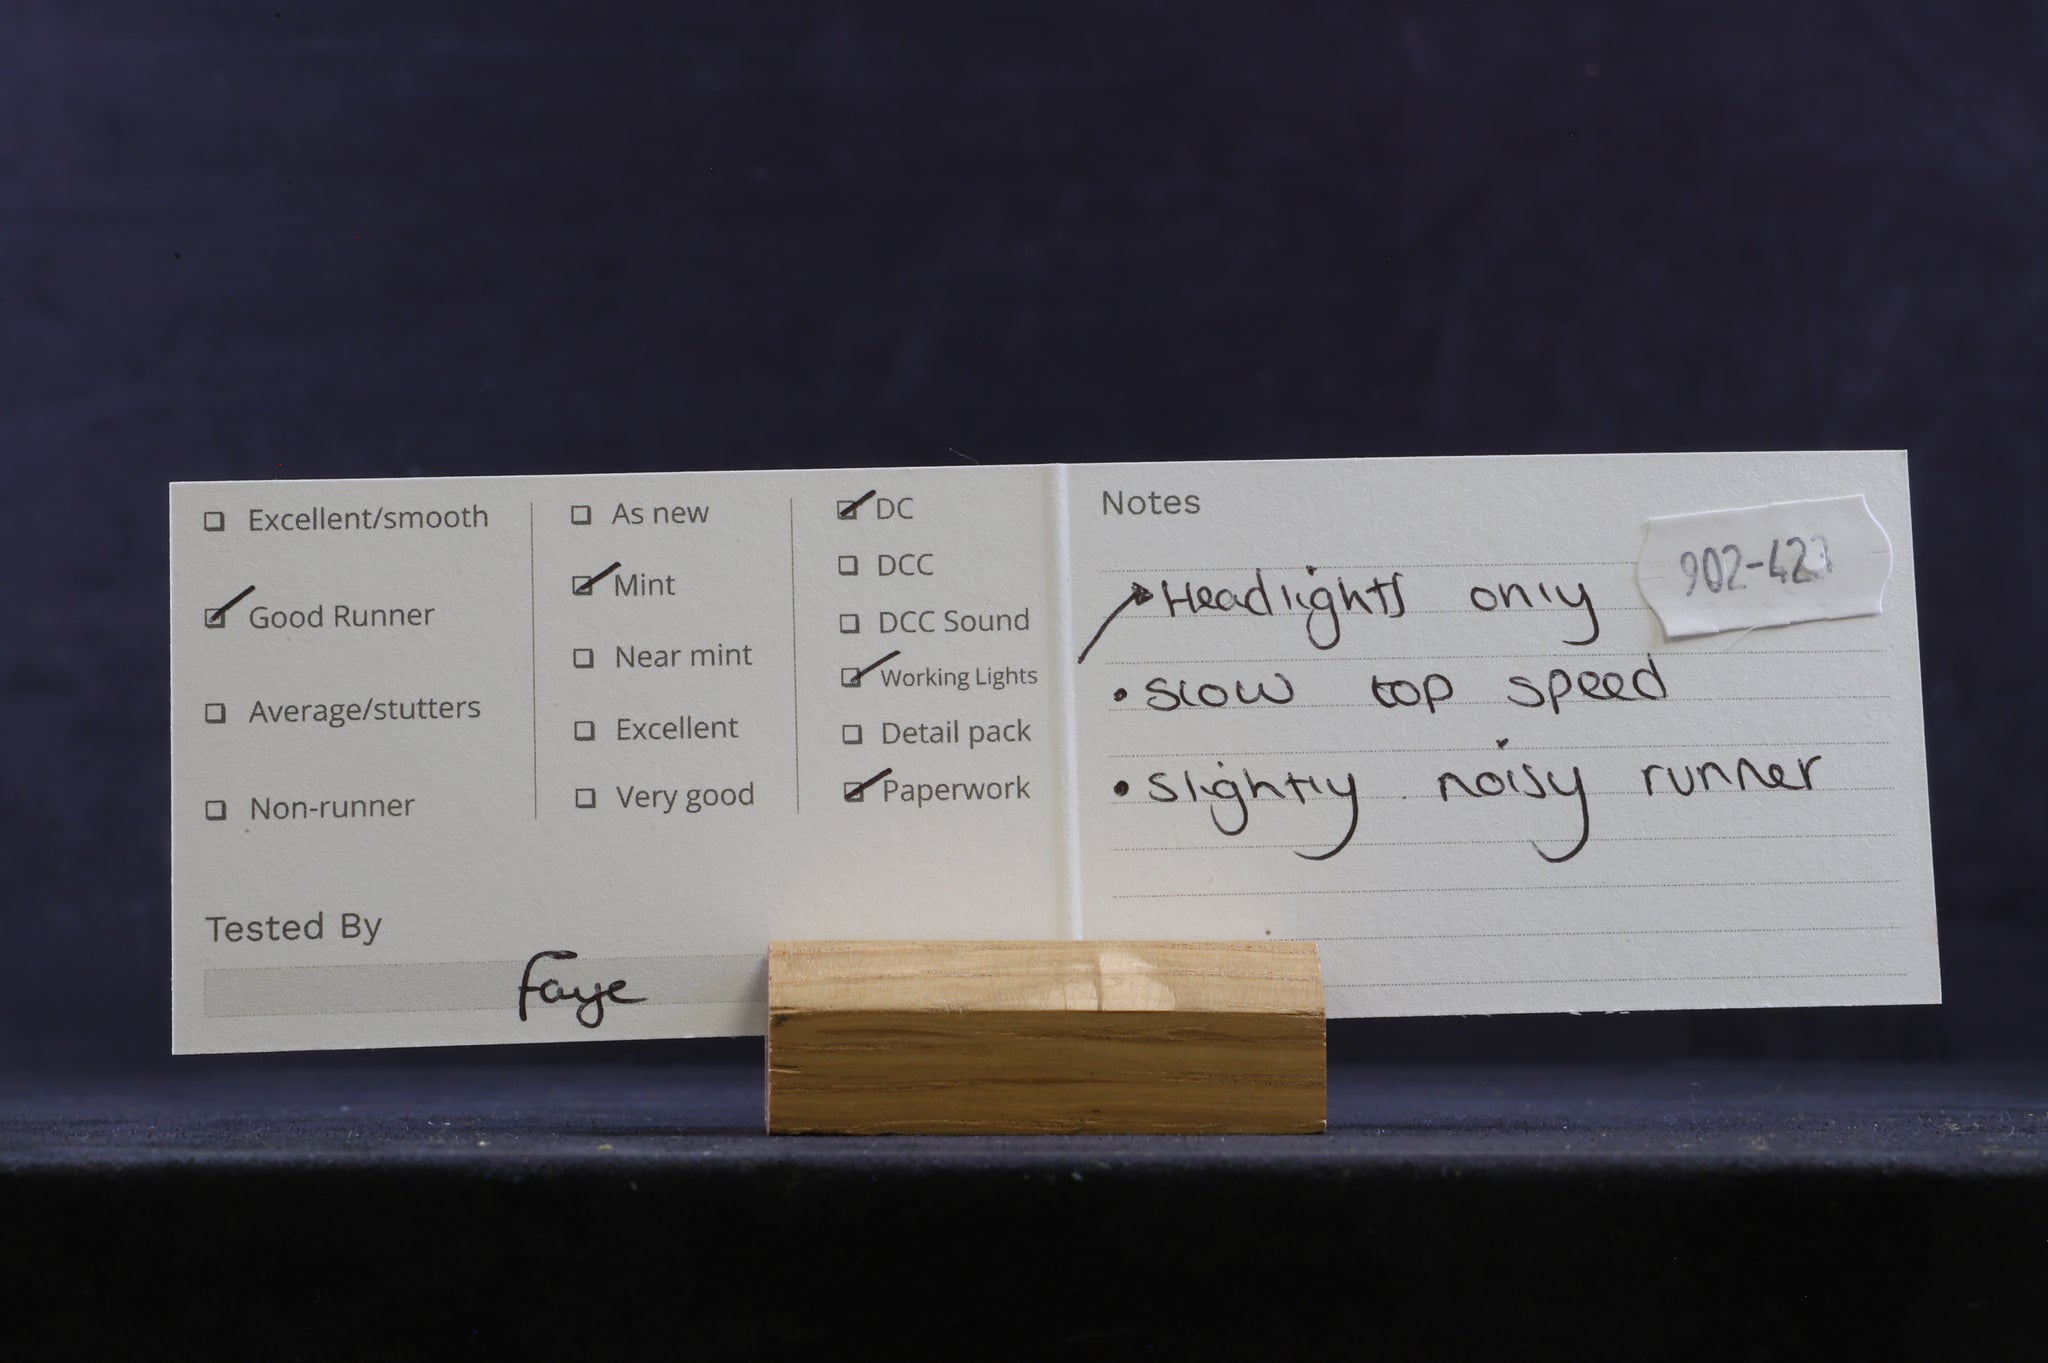 Excellent/smooth
Good Runner
Average/stutters
Non-runner
As new
Mint
Near mint
Excellent
Very good
DC
DCC
DCC Sound
Working Lights
Detail pack
Paperwork
Tested By
Faye
Notes
902-423
Headlights only
• slow top speed
• slightly noisy runner